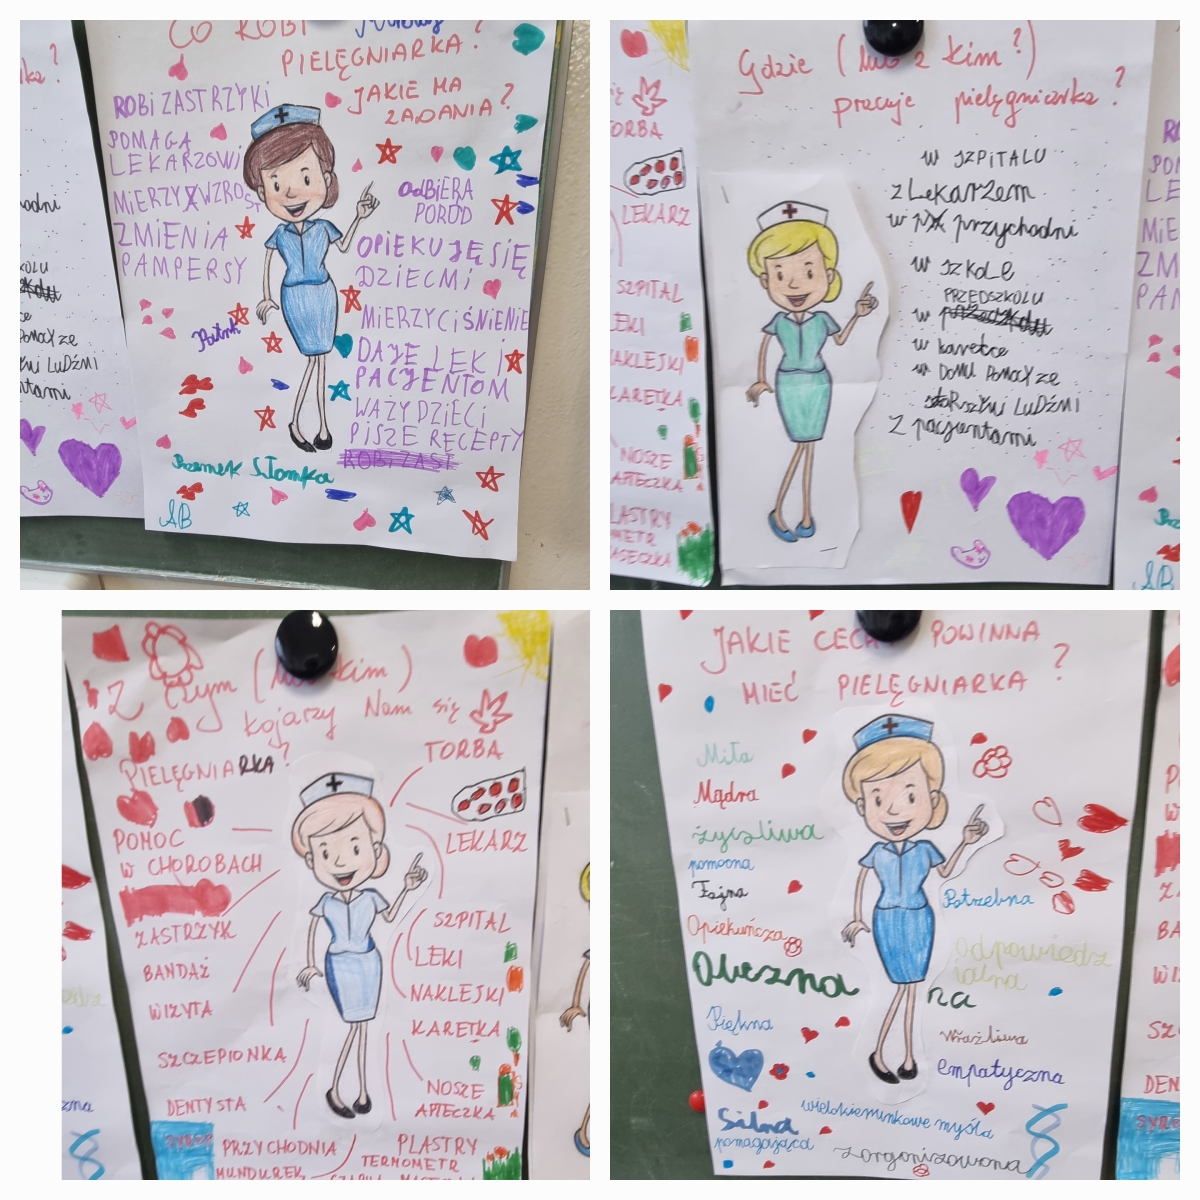 CO ROBI
PIELĘGNIARKA?
JAKIE MA
ZADANIA?
ROBI ZASTRZYKI
POMAGA
LEKARZOWI
MIERZY WZROST
ZMIENIA
PAMPERSY
OdBIERA
PORÓD
OPIEKUJĘ SIĘ
DZIECMI
MIERZY CIŚNIENIE
DAJE LEKI
PACJENTOM
WAŻY DZIECI
PISZE RĘCEPTY
ROBI ZAST
Przemek Słomka
AB
Gdzie (lub z kim?)
pracuje pielęgniarka?
w SZPITALU
z Lekarzem
w przychodni
w SZKOLE
PRZEDSZKOLU
w
w karetce
w DOMU POMOCY ze
starszymi LUDŹMI
Z pacjentami
Z czym (lub kim)
kojarzy Nam się
PIELĘGNIARKA?
POMOC
W CHOROBACH
ZASTRZYK
BANDAŻ
WIZYTA
SZCZEPIONKA
DENTYSTA
SYROP
PRZYCHODNIA
MUNDUREK
TORBA
LEKARZ
SZPITAL
LEKI
NAKLEJKI
KARETKA
NOSZE
APTECZKA
PLASTRY
TERMOMETR
JAKIE CECHY POWINNA
MIEĆ PIELĘGNIARKA?
Miła
Mądra
życzliwa
pomocna
Fajna
Opiekuńcza
Obeznana
Piękna
Silna
pomagająca
Potrzebna
Odpowiedzialna
Wrażliwa
empatyczna
wielokierunkowo myśla
Zorganizowana